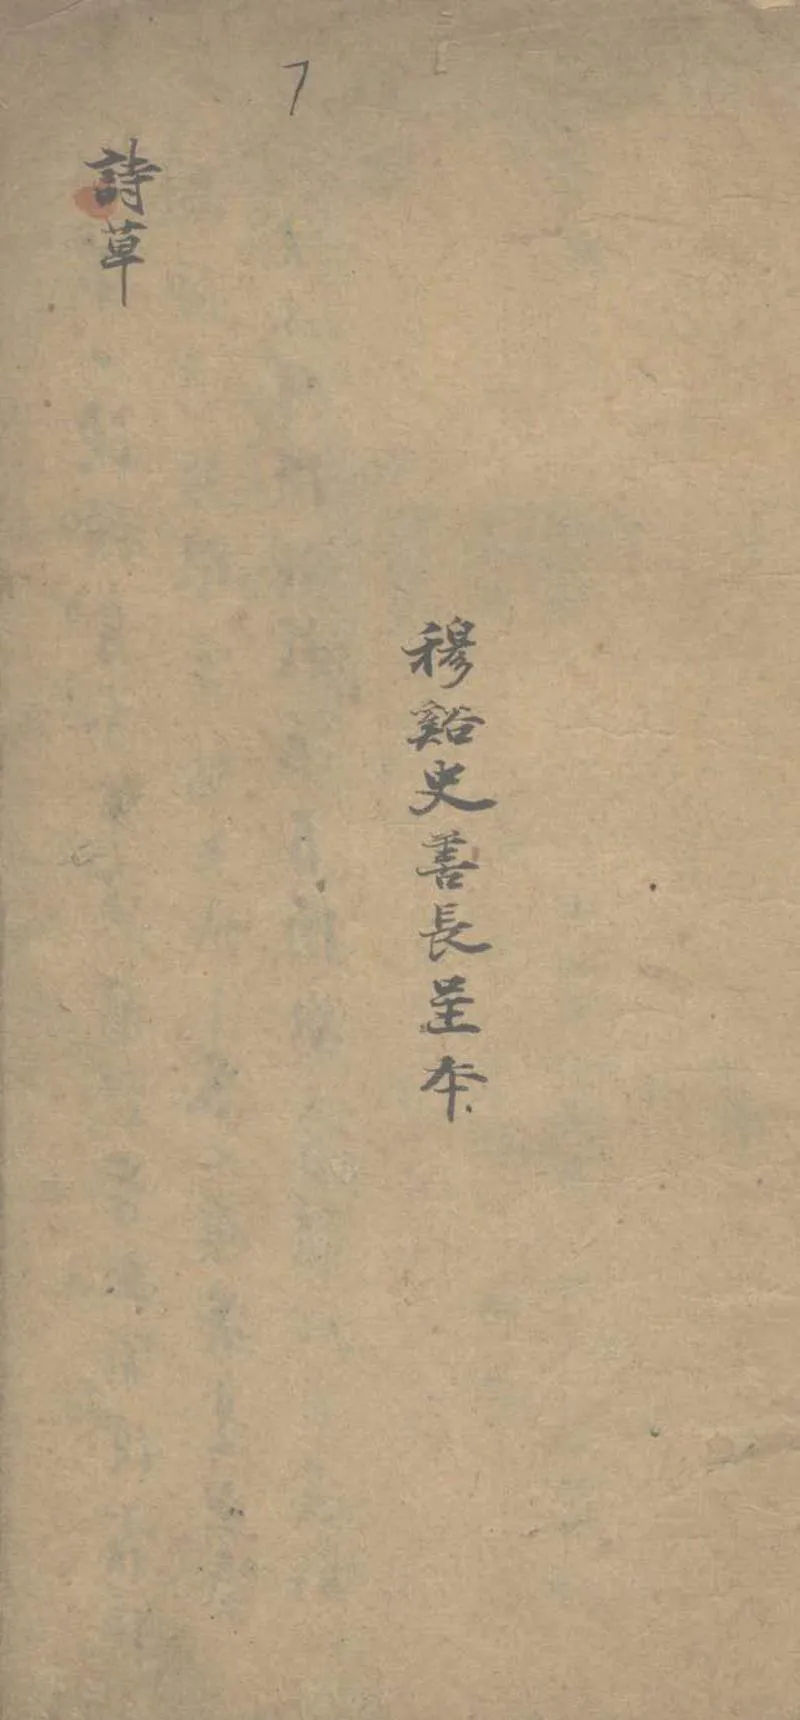 7
穆谿史善長呈本
詩草